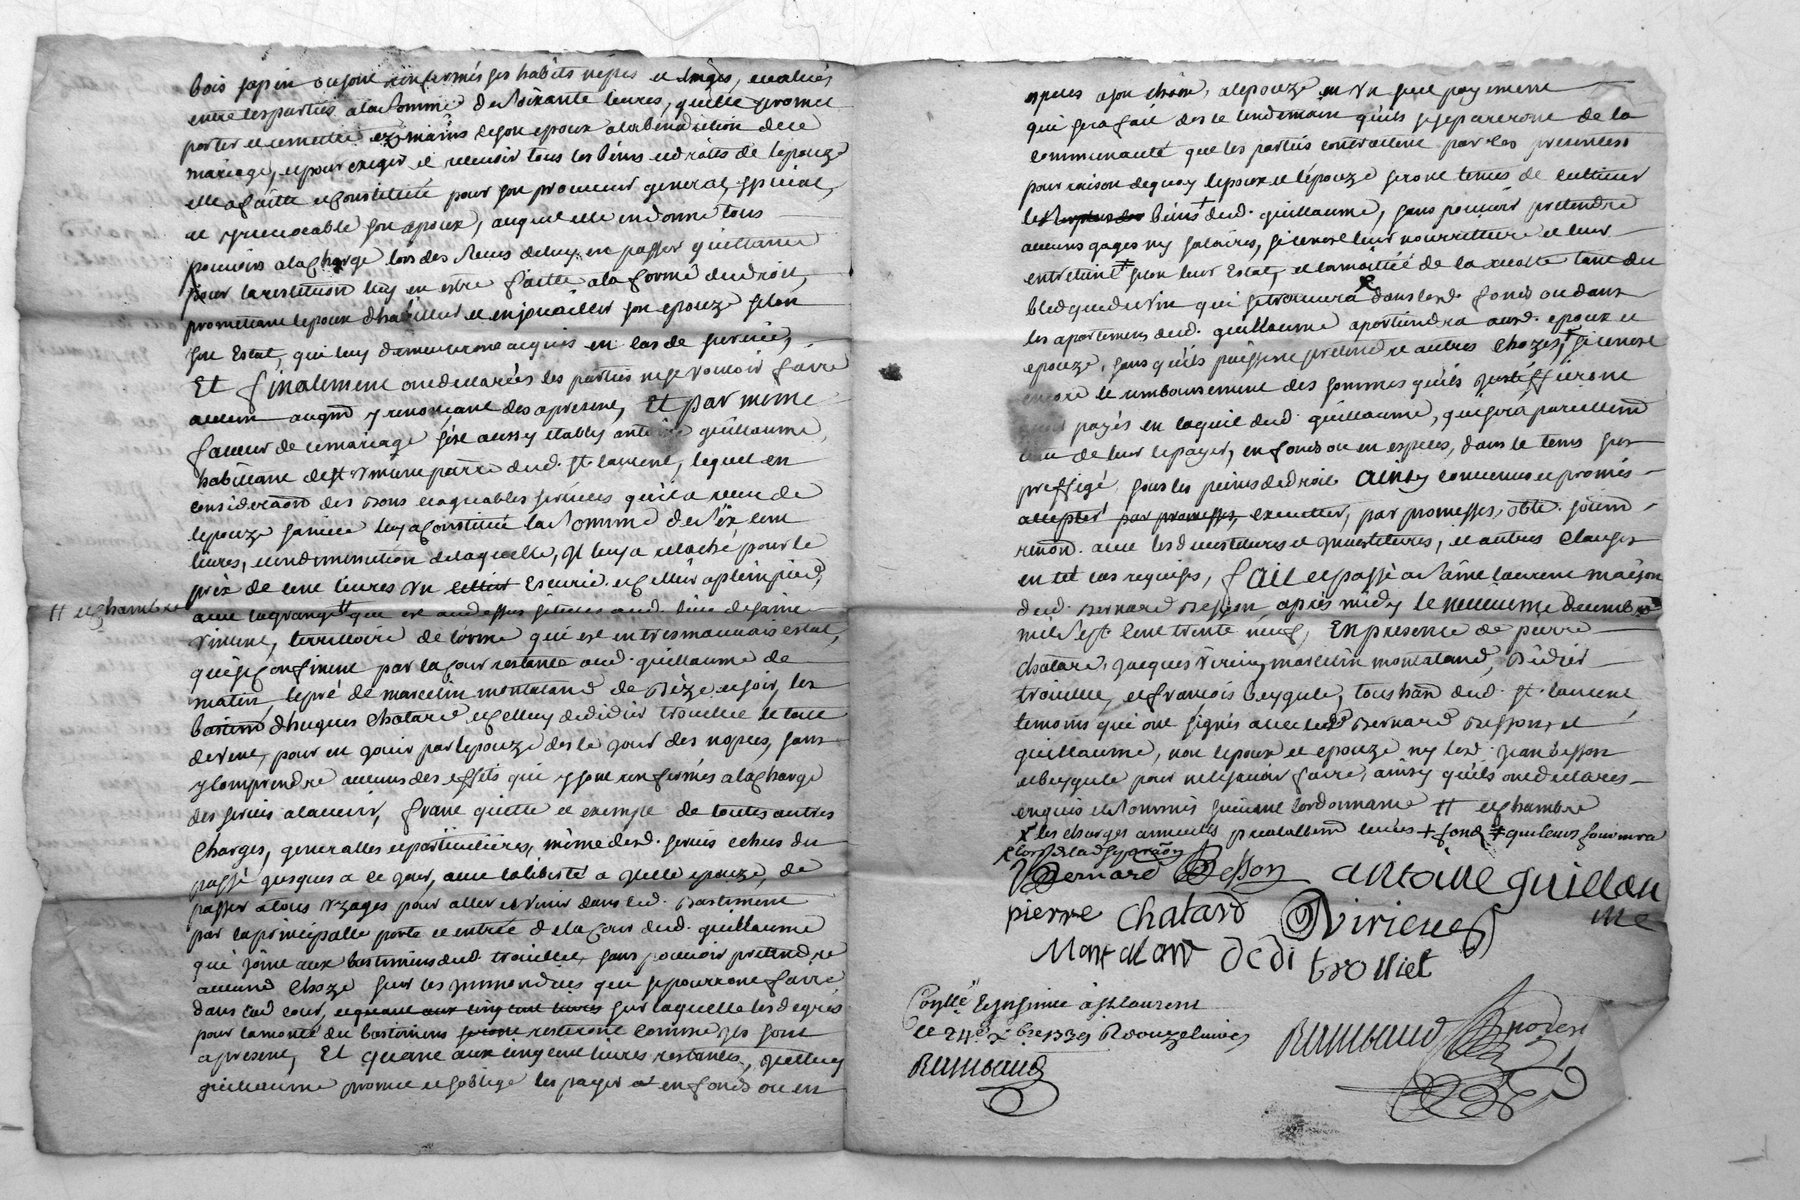 bois sapin ou sont renfermés ses habits nipes et linges, evalués
entre les parties a la somme de soixante livres, quelle promet
porter et remettre ez mains de son epoux a la benediction de ce
mariage, et pour exiger et recevoir tous les biens et droits de lepouze
elle a faitte et constitué pour son procureur general special,
et yrrevocable son epoux, auquel elle en donne tous
pouvoirs a la charge lors des receus deluy en passer quittance
pour la restitution luy en estre faitte a la forme du droit,
promettant lepoux dhabiller et enjouailler son epouze selon
son Estat, qui luy demeureront acquis en cas de survie,
Et finalement ont declarées les parties ne se vouloir faire
aucun augmt y renonçant des apresent, Et par meme
faveur de ce mariage s'est aussy etably antoine guillaume
habitant de st vmême parre dud. st laurent, lequel en
consideraõn des bons et agreables services quil a receu de
lepouze sa niece luy a constitué la somme de six cent
livres, en diminution de laquelle, il luy a relaché pour le
prix de cent livres un Escurie et cellier a plein pied,
avec la grange # qui est au dessus situées aud. lieu de saint
# et chambre
vincent, territoire de lorme qui est en tres mauvais estat,
qui se confinent par la cour restante aud. guillaume de
matin, le pré de marcelin montaland de bize et soir, les
bastimts dhugues chatard et celluy de didier trouillet le tout
de vent, pour en jouir par lepouze des le jour des nopces, sans
y comprendre aucuns des effets qui y sont renfermés a la charge
des servis a lavenir, franc quitte et exempt de toutes autres
charges, generalles et particulieres, même desd. servis echus du
passé jusques a ce jour, avec la liberté a ycelle epouze, de
passer a tous uzages pour aller et venir dans led. bastiment
par la principalle porte et entrée de la cour dud. guillaume
qui joint aux bastimens dud. trouillet, sans pouvoir pretendre
aucune choze sur les immondices qui se pourront faire
dans lad cour, et quant aux cinq cent livres sur laquelle les degrés
pour la monté du bastimens seront resteront comme ils sont
apresent, Et quant aux cinq cent livres restantes, ycelluy
guillaume promet et soblige les payer a en fonds ou en
especes a son choix, a lepouze en un seul payement
qui sera fait des le lendemain quils se separeront de la
communauté que les parties contractent par les presentes
pour raison de quoy lepoux et lépouze seront tenus de cultiver
les biens + dud. guillaume, sans pouvoir pretendre
aucuns gages ny salaires, si ce nest leur nourritture et leur
entretient ‡ selon leur Estat, et la moitié de la recolte tant du
bled que du vin qui se trouvera dans lesd. fonds ou dans
les apartemens dud. guillaume apartiendra ausd. epoux et
epouze, sans quils puissent pretendre autres chozes, si ce nest
encore le remboursement des sommes quils justiffieront
payés en lacquit dud. guillaume, qui sera pareillemt
de leur repayer, en fonds ou en especes, dans le tems sus
preffigé sous les peines de droit Ainsy convenu et promis
accepter par promesses, executter, par promesses, oblié. soumn
renon. avec les devestitures et investitures, et autres clauses
en tel cas requises, fait et passé a saint laurent maison
dud. Bernard Besson, apres midy le neuvieme decembre
mil sept cent trente neuf, En presence de pierre
chatard, jacques viricy marcelin montaland, didier
trouillet, et françois beygule, tous habn dud. st laurent,
temoins qui ont signés avec led Bernard Besson, et
guillaume, non lepoux et epouze ny led. jean besson
et beygule pour ne le sçavoir faire, ainsy quils ont declarés
enquis et sommés suivant lordonnance # et chambre
x les charges annuels prealablemt levées + fond ‡ qui leurs fournira
lors de la d separaõn
Bernard Besson antoine guillau
me
pierre chatard Viricy
Montaland dedi trolliet
Conlle et insinué a st laurent
le 24e xbre 1739 R douze livres
Rambaud
Rambaud